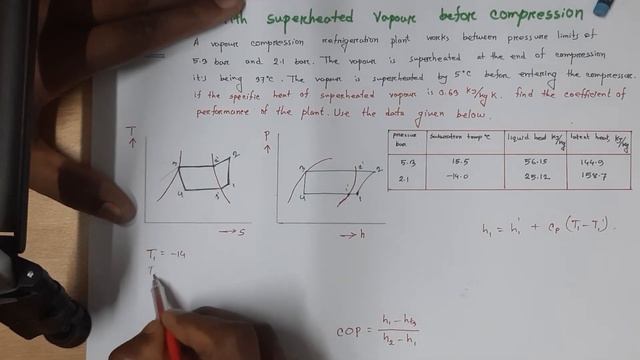 with superheated vapour before compression
A vapour compression refrigeration plant works between pressure limits of
5.3 bar and 2.1 bar. The vapour is superheated at the end of compression
its being 37°C. The vapour is superheated by 5°C before entering the compressor.
if the specific heat of superheated vapour is 0.63 KJ/kg K. find the coefficient of
performance of the plant. Use the data given below.
pressure bar | Saturation temp °C | liquid heat KJ/kg | latent heat, KJ/kg
5.3 | 15.5 | 56.15 | 144.9
2.1 | -14.0 | 25.12 | 158.7
T
3 2' 2
4 1
→ s
P
3 2' 2
4 1' 1
→ h
h1 = h1' + Cp (T1 - T1').
T1 = -14
COP = h1 - hf3 / h2 - h1